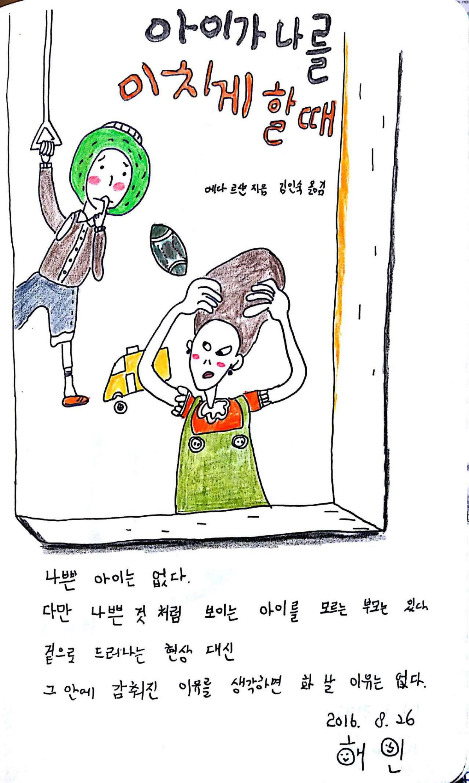 아이가 나를
미치게 할 때
에다 르샨 지음 김인숙 옮김
나쁜 아이는 없다.
다만 나쁜 것 처럼 보이는 아이를 모르는 부모는 있다
겉으로 드러나는 현상 대신
그 안에 감춰진 이유를 생각하면 화 날 이유는 없다.
2016. 8. 26
해인